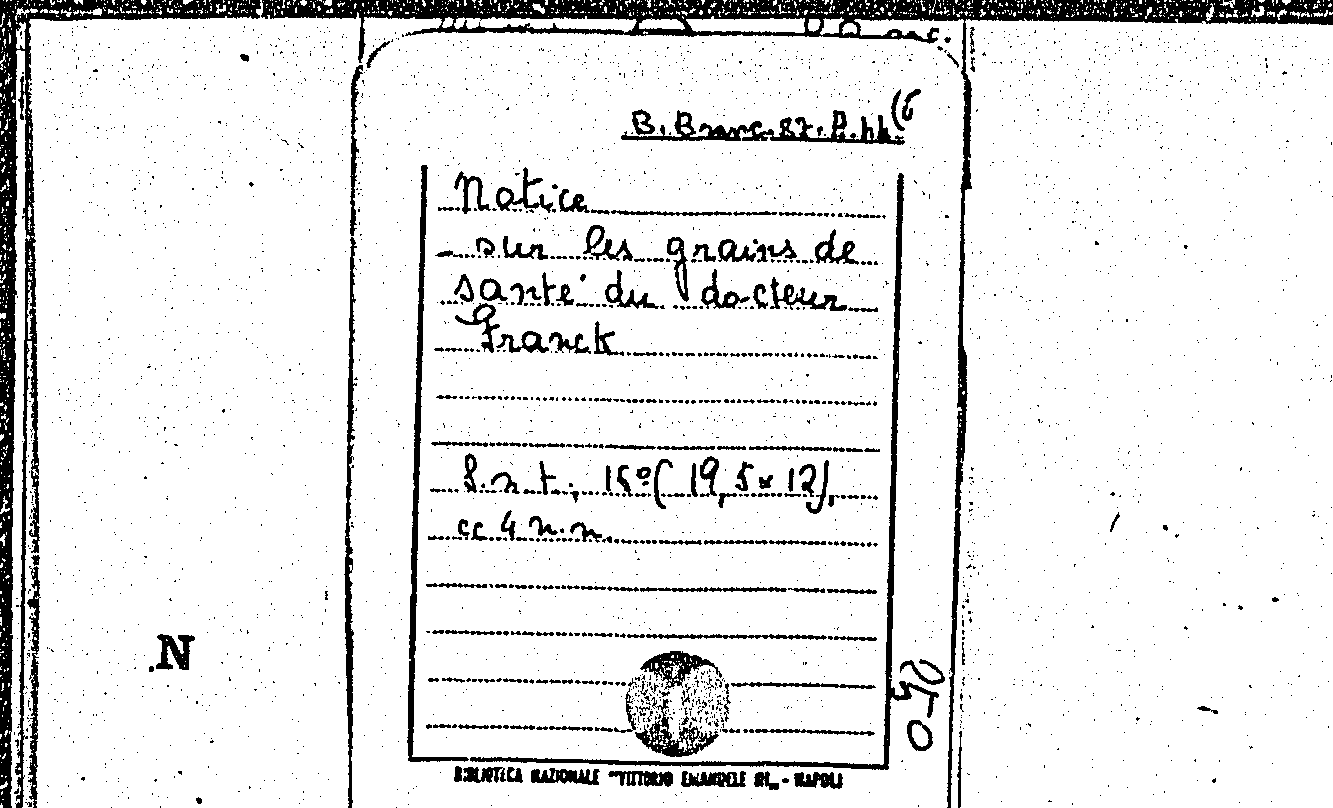 B. Branc. 87. A. hh. (6
Notice
sur les grains de
santé du docteur
Franck
S. n. t., 16º ( 19,5 x 12),
cc 4 n. n.
N
BIBLIOTECA NAZIONALE "VITTORIO EMANUELE III„ - NAPOLI